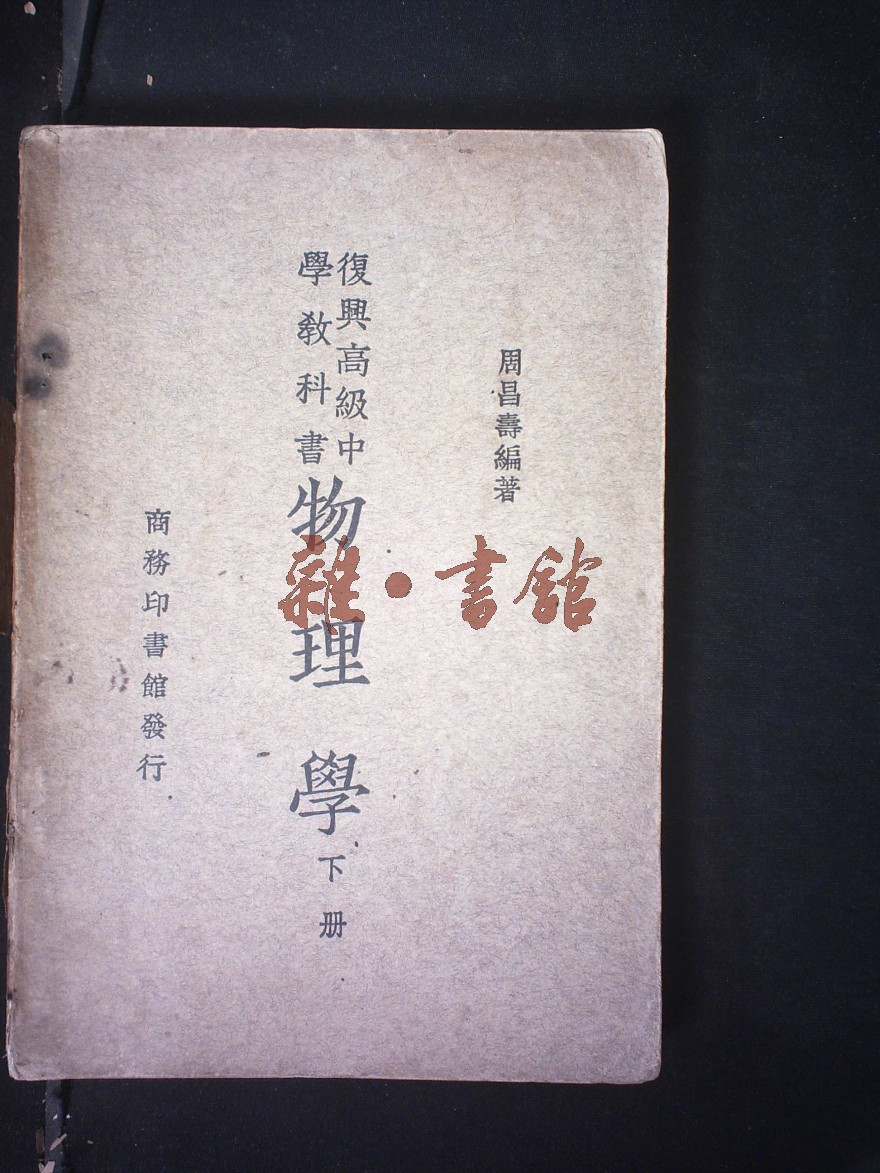 周昌壽編著
復興高級中
學教科書
物理學
下册
商務印書館發行
雜·書館